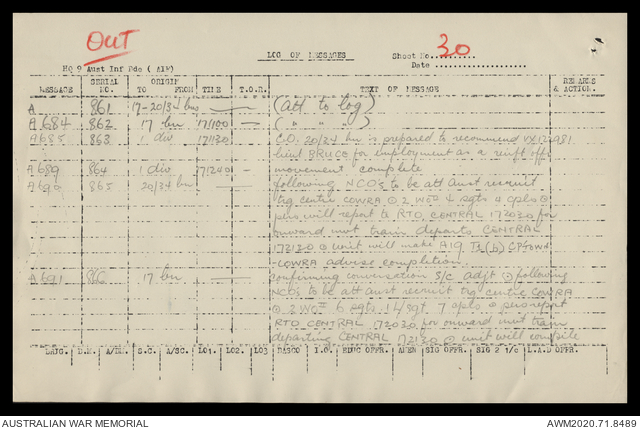 OUT
LOG OF MESSAGES
Sheet No. 30
HQ 9 Aust Inf Bde (AIF)
Date
MESSAGE SERIAL NO. ORIGIN TO FROM TIME T.O.R. TEXT OF MESSAGE REMARKS & ACTION.
A 861 17-20/34 bn (Att to log)
A684 862 17 bn 171100 ( " " " )
A685 863 1 div 171130 C.O. 20/34 bn is prepared to recommend VX
lieut BRUCE for employment as a reinft offr
A689 864 1 div 171240 movement complete
A690 865 20/34 bn following NCOs to be att aust recruit
trg centre COWRA 2 WO 4 sgts 4 cpls
pers will report to RTO CENTRAL 172030 for
onward mvt train departs CENTRAL
172130 unit will make A19
COWRA advise completion
A691 866 17 bn confirming conversation S/C adjt following
NCOs to be att aust recruit trg centre COWRA
6 sgts 1 L/sgt 7 cpls pers report
RTO CENTRAL 172030 for onward mvt train
departing CENTRAL 172130 unit will compile
BRIG. B.M. A/BM. S.C. A/SC. LO1. LO2. LO3 DASCO I.O. EDUC OFFR. AUEN SIG OFFR. SIG 2 I/C L.A.D OFFR.
AUSTRALIAN WAR MEMORIAL
AWM2020.71.8489